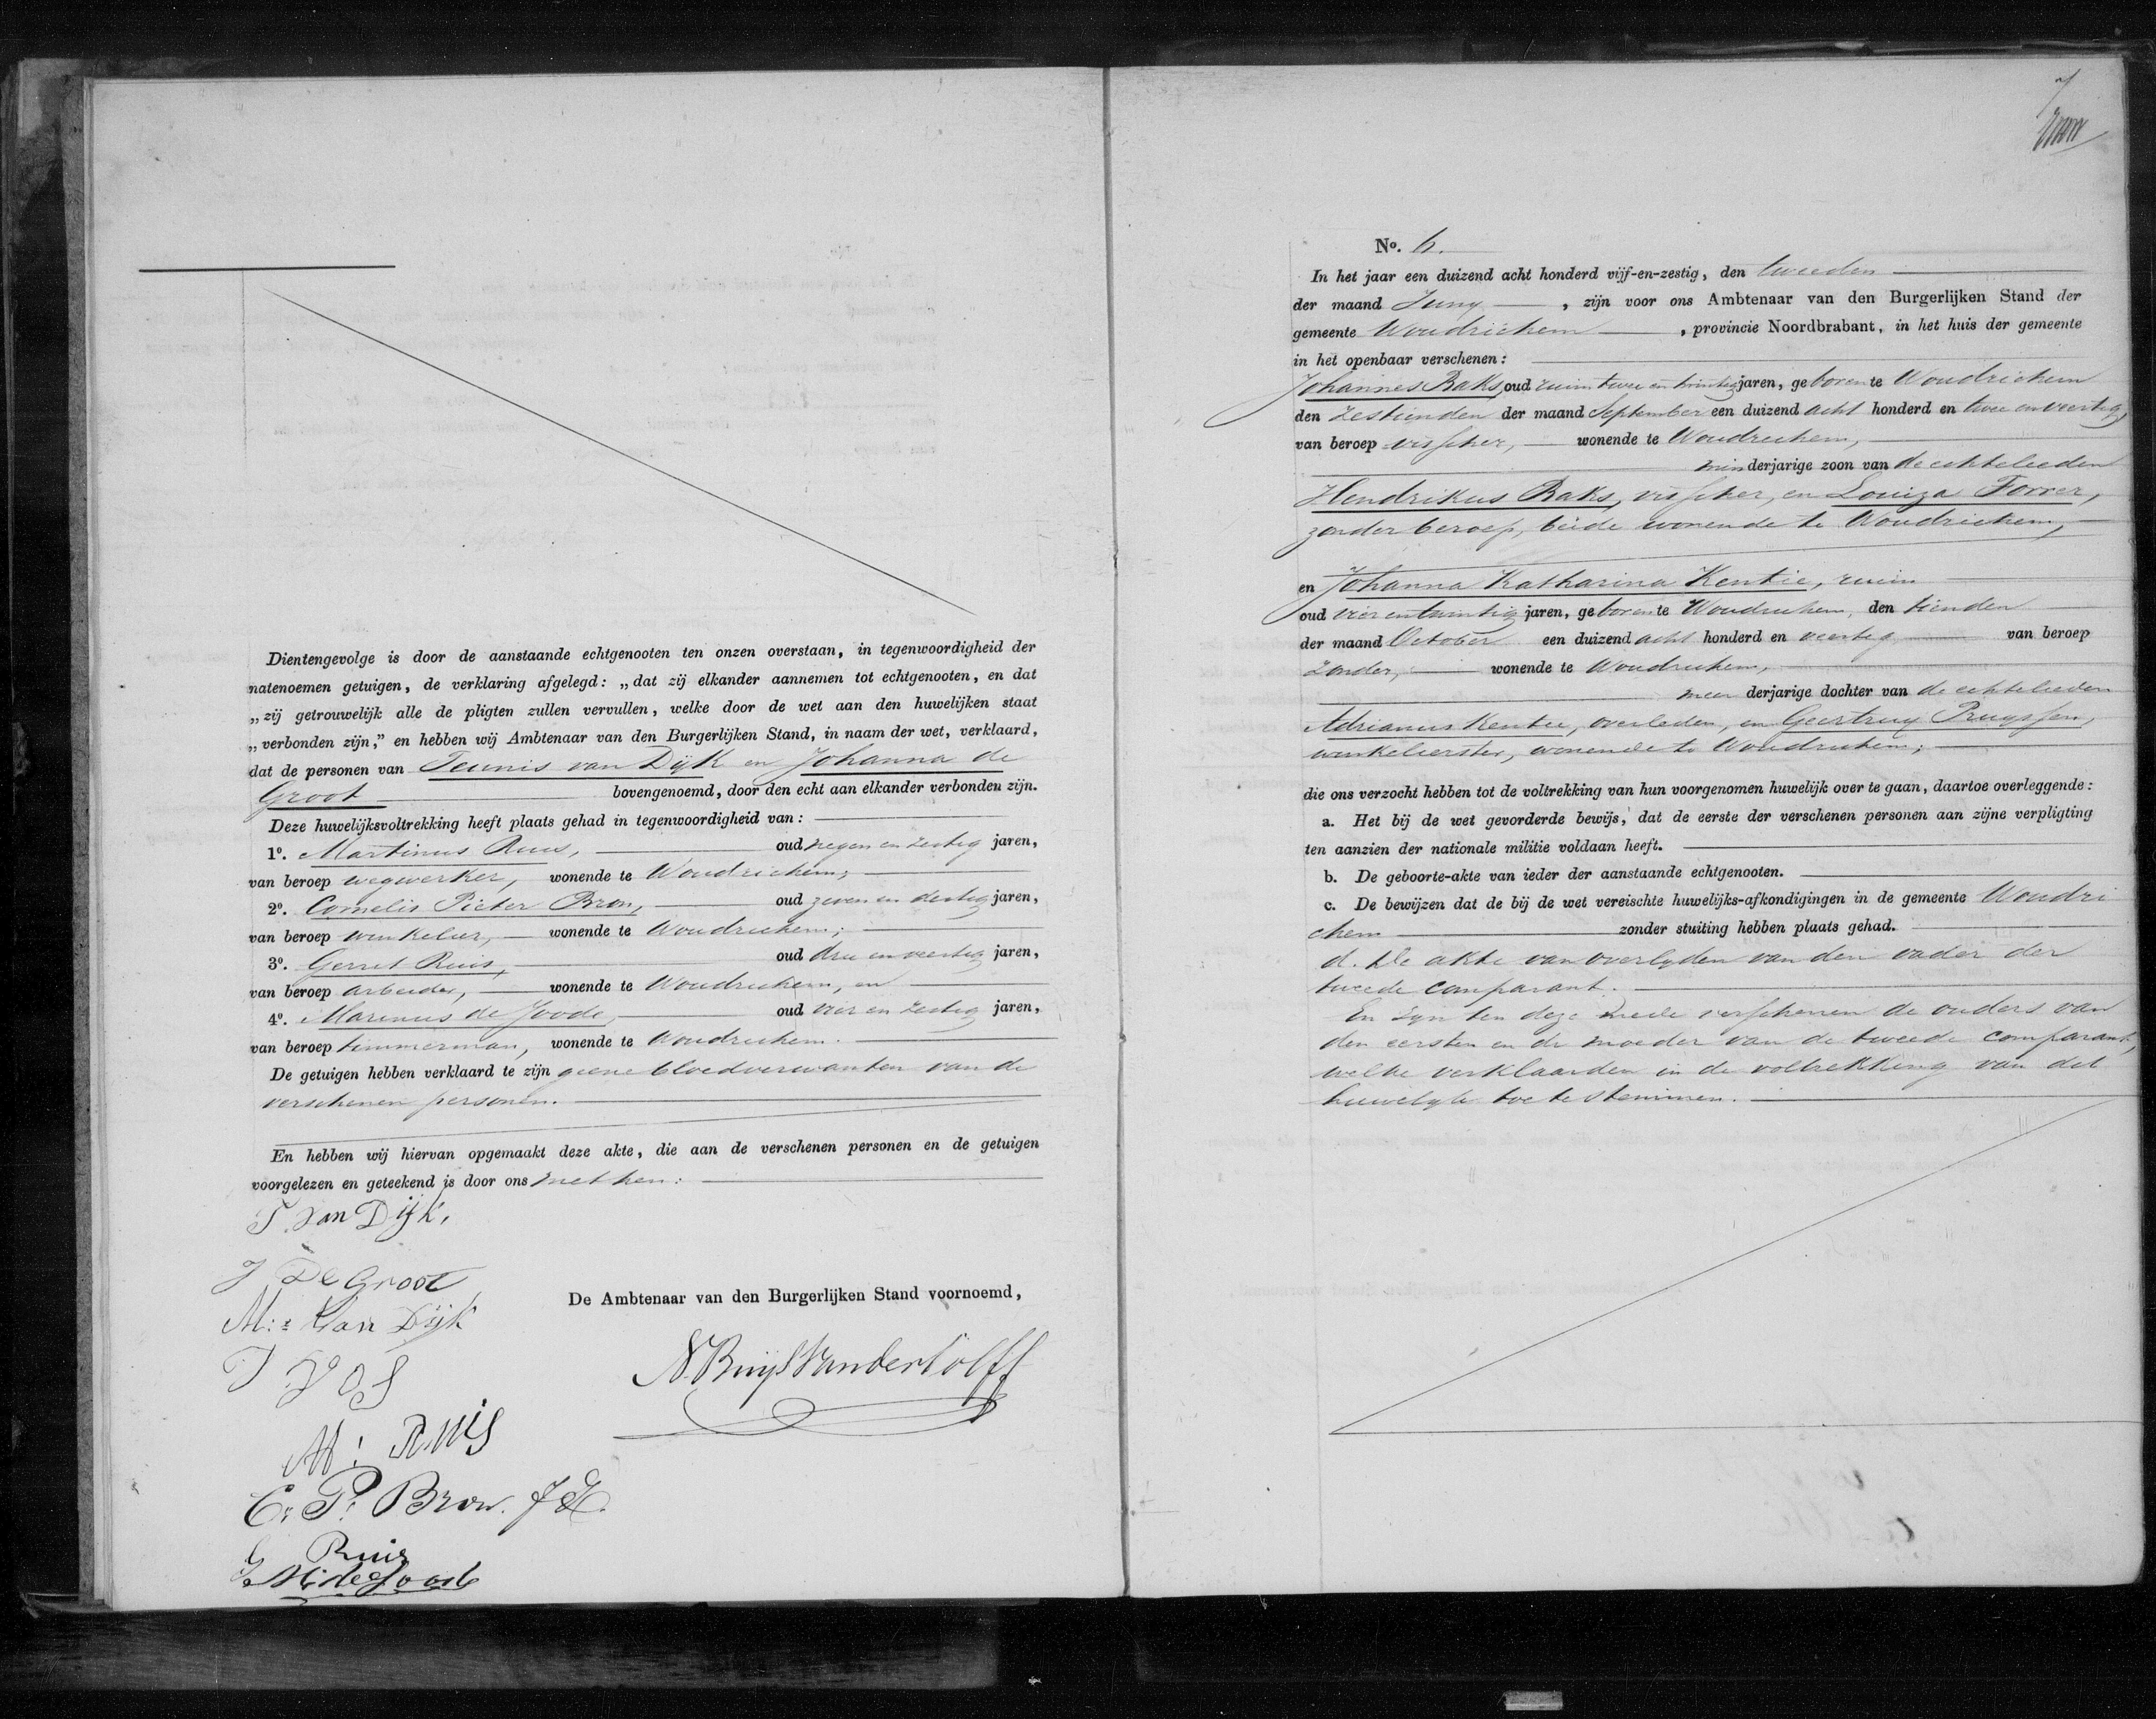 Dientengevolge is door de aanstaande echtgenooten ten onzen overstaan, in tegenwoordigheid der
natenoemen getuigen, de verklaring afgelegd: „dat zij elkander aannemen tot echtgenooten, en dat
„zij getrouwelijk alle de pligten zullen vervullen, welke door de wet aan den huwelijken staat
„verbonden zijn,” en hebben wij Ambtenaar van den Burgerlijken Stand, in naam der wet, verklaard,
dat de personen van Teunis van Dijk en Johanna de
Groot bovengenoemd, door den echt aan elkander verbonden zijn.
Deze huwelijksvoltrekking heeft plaats gehad in tegenwoordigheid van:
1º. Martinus Ruis, oud negen en zestig jaren,
van beroep wegwerker, wonende te Woudrichem;
2º. Cornelis Pieter Bron, oud zeven en dertig jaren,
van beroep winkelier, wonende te Woudrichem;
3º. Gerret Ruis, oud drie en veertig jaren,
van beroep arbeider, wonende te Woudrichem, en
4º. Marinus de Joode, oud vier en zestig jaren,
van beroep timmerman, wonende te Woudrichem.
De getuigen hebben verklaard te zijn geene bloedverwanten van de
verschenen personen.
En hebben wij hiervan opgemaakt deze akte, die aan de verschenen personen en de getuigen
voorgelezen en geteekend is door ons met hen:
T. van Dijk,
J De Groot
M: van Dijk
J Vos
De Ambtenaar van den Burgerlijken Stand voornoemd,
M: Ruis
C: P: Bron. JZ.
G Ruis
M: de Joode
7
No. 6.
In het jaar een duizend acht honderd vijf-en-zestig, den tweeden
der maand Juny, zijn voor ons Ambtenaar van den Burgerlijken Stand der
gemeente Woudrichem, provincie Noordbrabant, in het huis der gemeente
in het openbaar verschenen:
Johannes Baks, oud ruim twee en twintig jaren, geboren te Woudrichem
den zestienden der maand September een duizend acht honderd en twee en veertig,
van beroep visscher, wonende te Woudrichem,
minderjarige zoon van de echtelieden
Hendrikus Baks, visscher, en Louiza Forrer,
zonder beroep, beide wonende te Woudrichem,
en Johanna Katharina Kentie, ruim
oud vier en twintig jaren, geboren te Woudrichem, den tienden
der maand October een duizend acht honderd en veertig van beroep
zonder, wonende te Woudrichem,
meerderjarige dochter van de echtelieden
Adrianus Kentie, overleden, en Geertruy Pruyssen,
winkelierster, wonende te Woudrichem;
die ons verzocht hebben tot de voltrekking van hun voorgenomen huwelijk over te gaan, daartoe overleggende:
a. Het bij de wet gevorderde bewijs, dat de eerste der verschenen personen aan zijne verpligting
ten aanzien der nationale militie voldaan heeft.
b. De geboorte-akte van ieder der aanstaande echtgenooten.
c. De bewijzen dat de bij de wet vereischte huwelijks-afkondigingen in de gemeente Woudri
chem zonder stuiting hebben plaats gehad.
d. De akte van overlyden van den vader der
tweede comparant.
En zyn ten deze mede verschenen de ouders van
den eersten en de moeder van de tweede comparant,
welke verklaarden in de voltrekking van dit
huwelyk toe te stemmen.